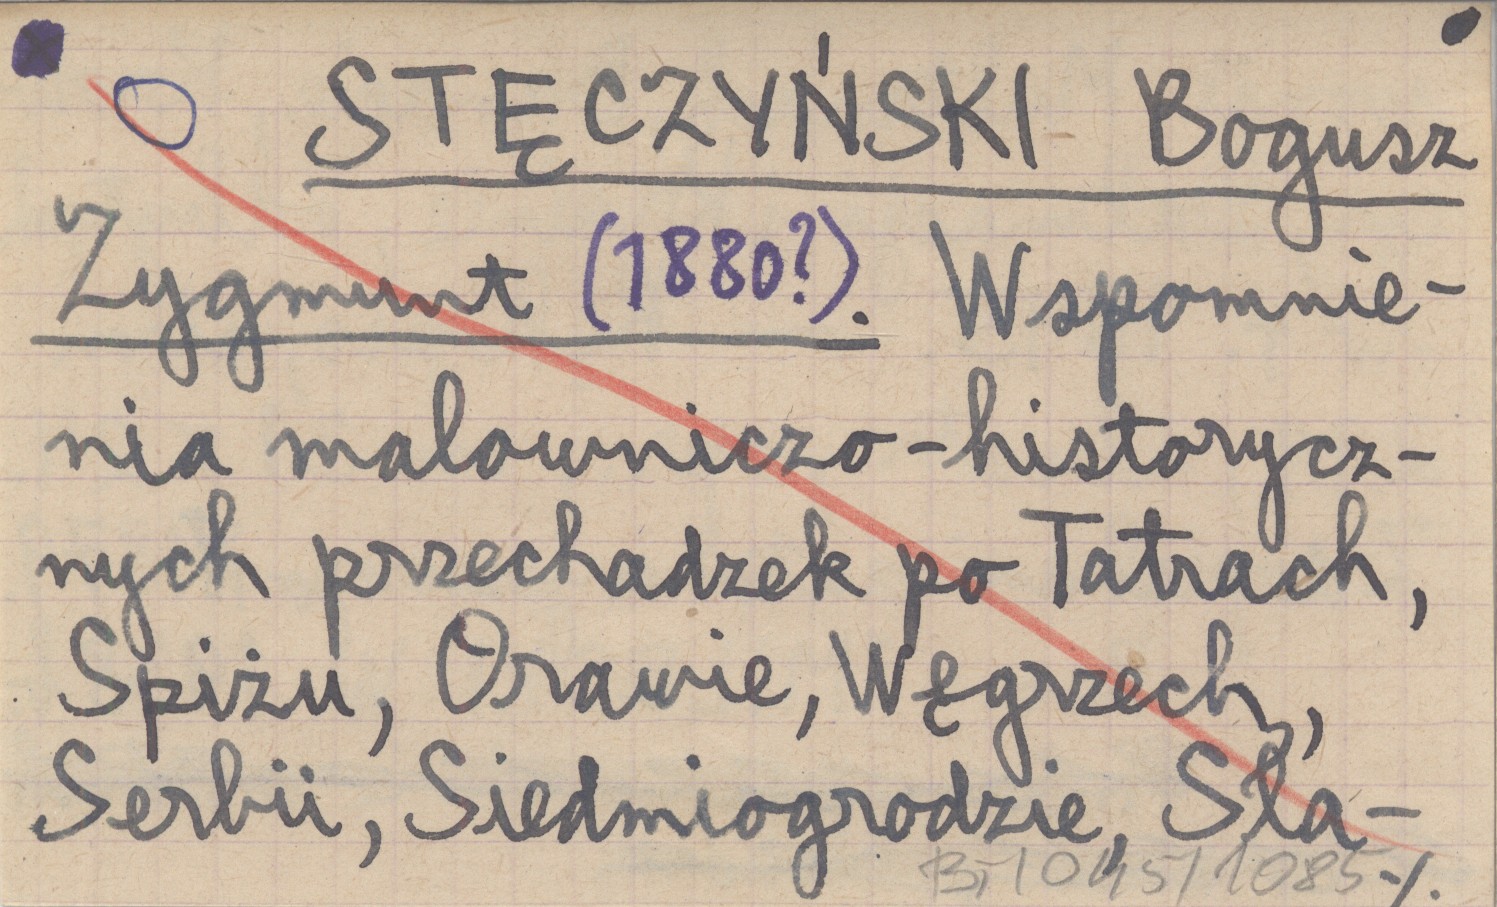 STĘCZYŃSKI Bogusz
Zygmunt (1880?). Wspomnie-
nia malowniczo-historycz-
nych przechadzek po Tatrach,
Spiżu, Orawie, Węgrzech,
Serbii, Siedmiogrodzie, Śla-
./.